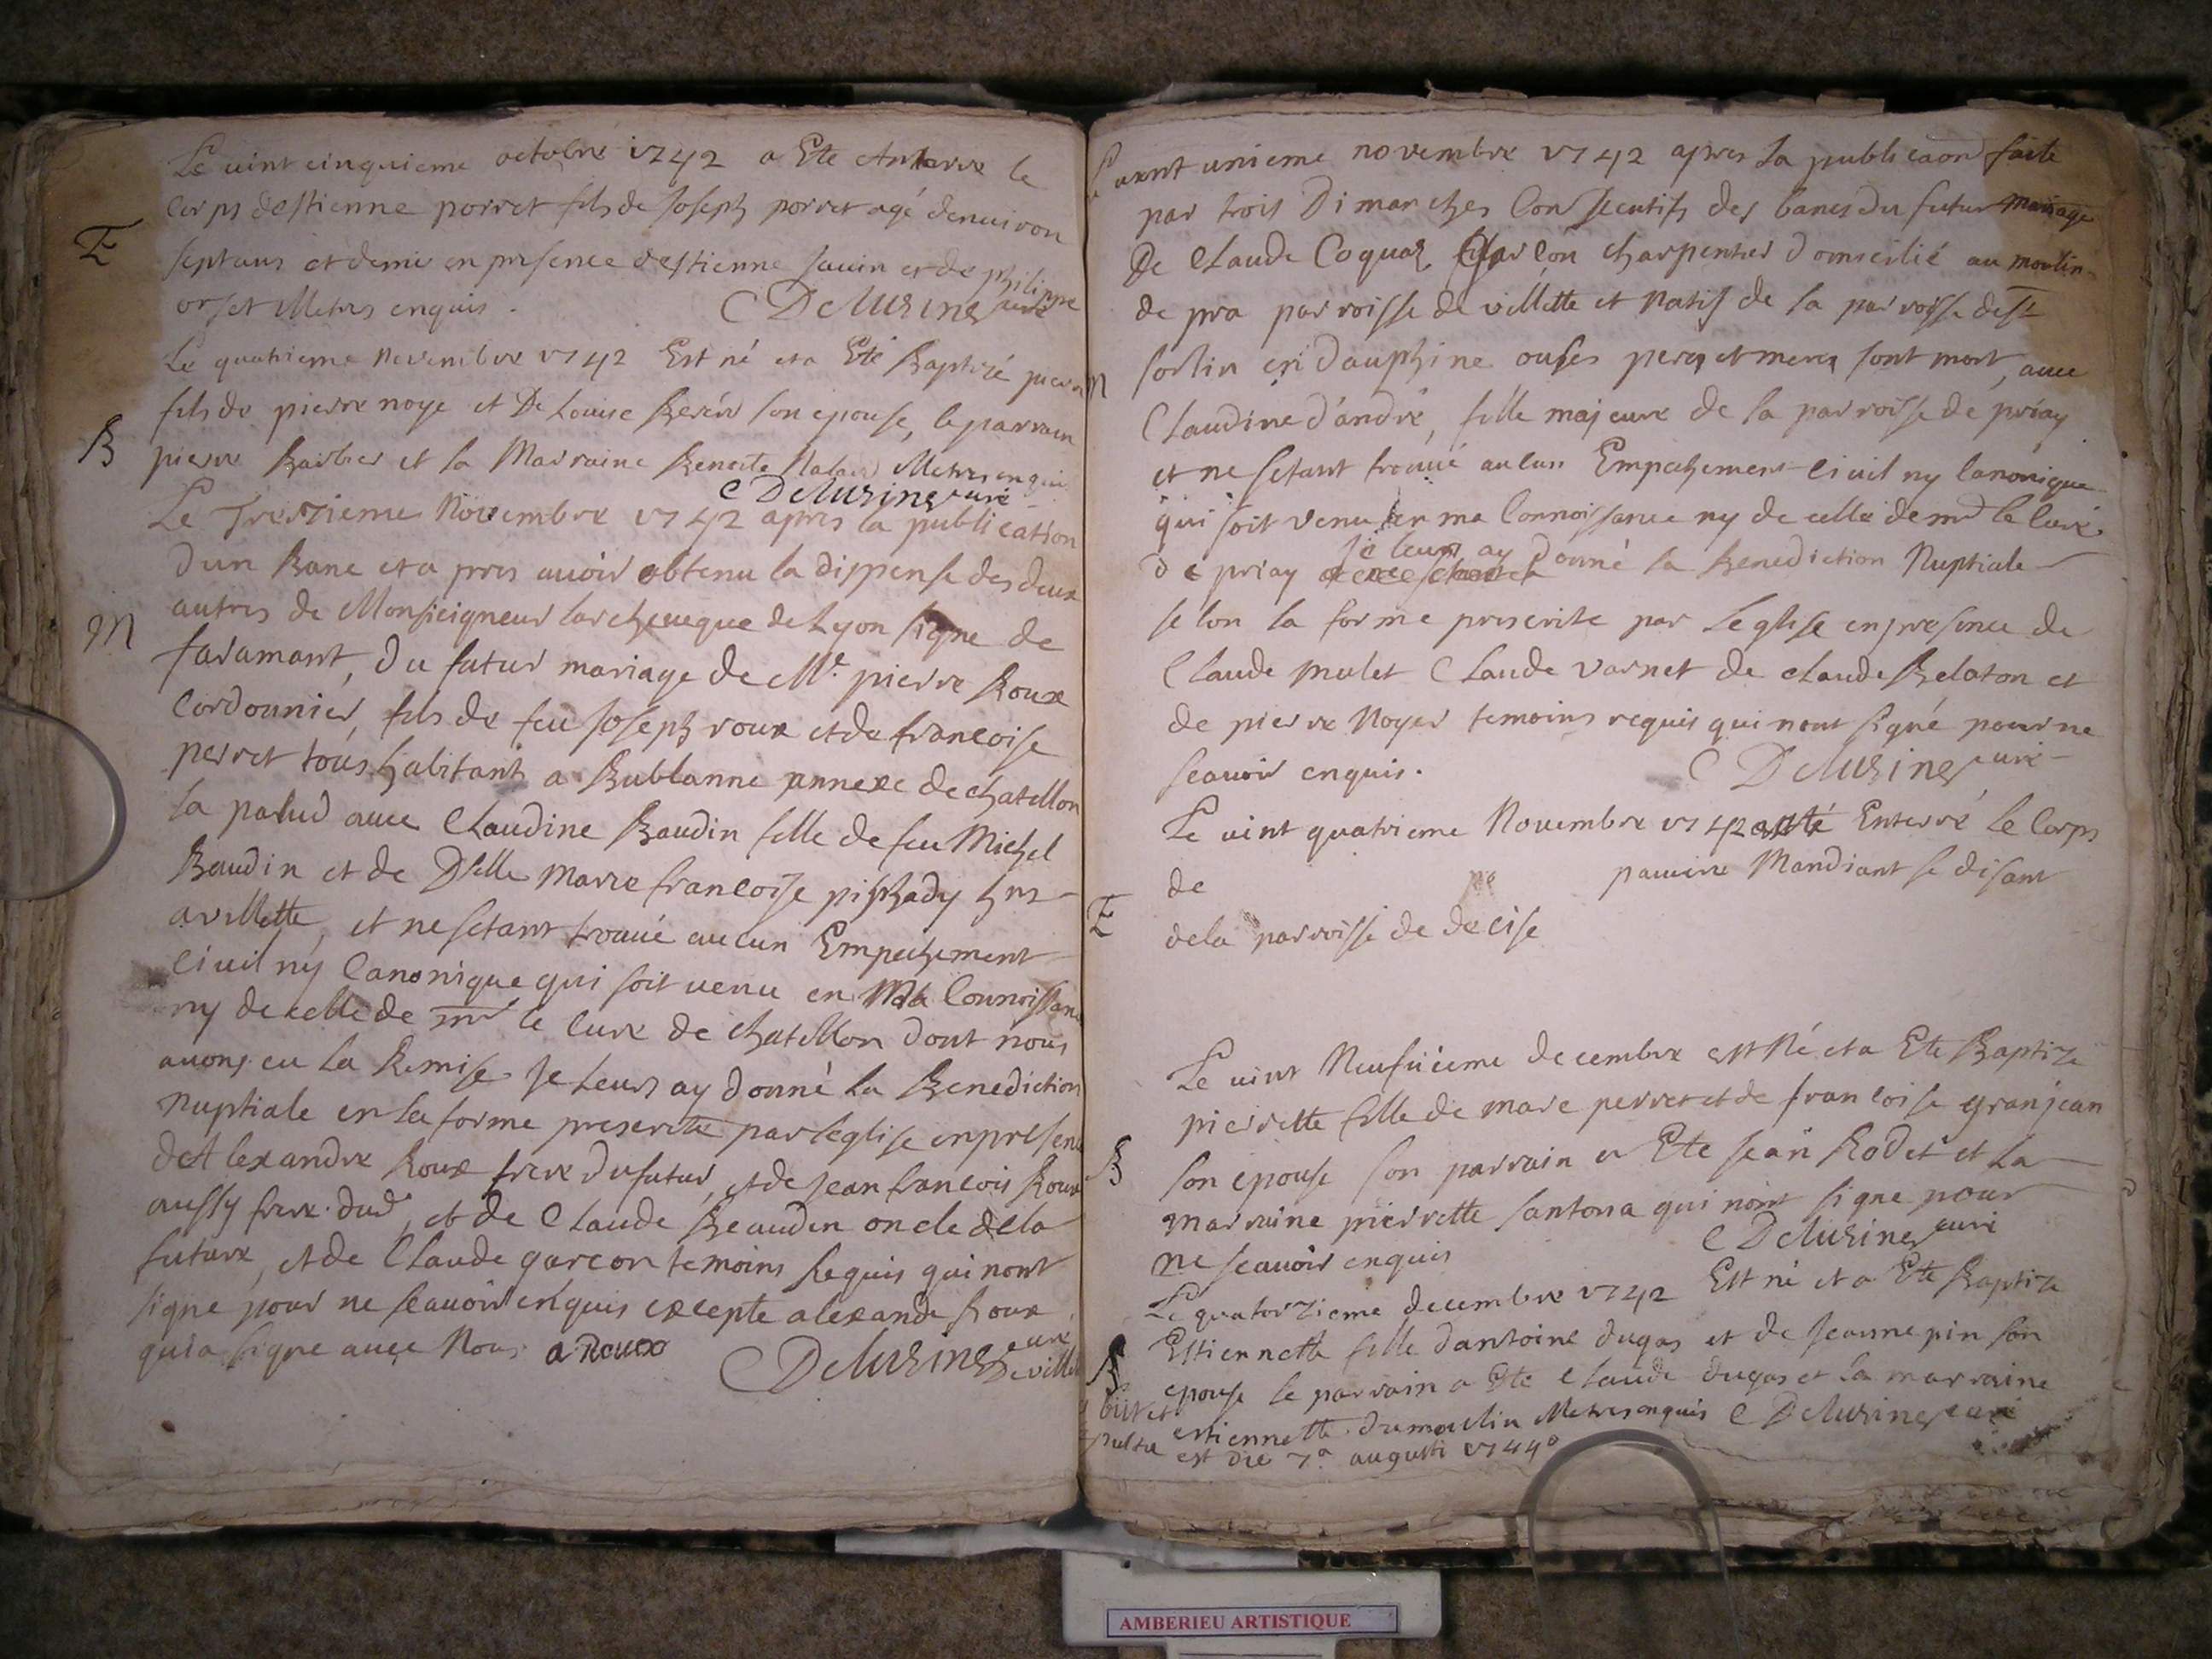 Le vint cinquieme octobre 1742 a Ete Anterre le
Corps destienne porret fils de Joseph porret agé denuiron
E
sept ans et demi en presence destienne Jauin et de philippe
orset illetres enquis. Delusines curé
Le quatrieme Novembre 1742 Est né et a Eté Baptizé pierre
fils de pierre noye et De Louise son epouse, le parrain
B
pierre Barbier et la Marraine Benoite illetres enquis
Delusines curé
Le Treizieme Novembre 1742 apres la publication
Dun Banc et a pres auoir obtenu la dispense des deux
autres de Monseigneur larcheueque de Lyon signe de
M
faramant, du futur mariage de Mr. pierre Roux
Cordonnier, fils de feu Joseph roux et de francoise
perret tous habitants a Bublanne annexe de chatillon
la palud auec Claudine Baudin fille de feu Michel
Baudin et de Delle Marie francoise
a villette, et ne setant trouué aucun Empechement
Ciuil ny Canonique qui soit uenu en Ma Connoissance
ny de celle de mr le Curé de chatillon dont nous
auons eu la Remise Je Leurs ay donné la Benediction
Nuptiale en la forme prescrite par leglise en presence
dAlexandre Roux frere du futur, et de Jean francois Roux
aussy frere dud, et de Claude Beaudin oncle de la
future, et de Claude garcon temoins Requis qui nont
signe pour ne scauoir enquis excepte alexandre Roux
qui a signe auec Nous a Roux Delusines curé
de villette
Le vint unieme novembre 1742 apres la publicaon faite
par trois Dimanches Consecutifs des bancs du futur mariage
De Claude Coquaz Garcon charpentier domicilié au moulin
de pra parroisse de villette et natif de la parroisse de St
M
sorlin en dauphine ou ses peres et meres sont mort, auec
Claudine d'andré, fille majeure de la parroisse de priay
et ne setant trouué aucun Empechement Ciuil ny Canonique
qui soit venu en ma Connoissance ny de celle de mr le Curé
de priay je leurs ay Donné la Benediction Nuptiale
selon la forme prescrite par Leglise en presence de
Claude mulet Claude varnet de claude Belaton et
de pierre Noyer temoins requis qui nont signé pour ne
scauoir enquis. Delusines curé
Le vint quatrieme Novembre 1742 a esté Enterré le Corps
de pauure Mandiant se disant
E
de la parroisse de decise
Le vint Neufuieme decembre est Né et a Ete Baptize
pierrette fille de marc perret et de francoise granjean
B
son epouse son parrain a Ete Jean Rodet et la
marraine pierrette santona qui nont signe pour
ne scauoir enquis Delusines curé
Le quatorzieme decembre 1742 Est né et a Ete Baptize
Estiennette fille dantoine dugas et de Jeanne pin son
B
epouse le parrain a Ete Claude dugas et la marraine
estiennette dumoulin illetres enquis Delusines curé
obiit et sepulta est die 7a augusti 1744o
AMBERIEU ARTISTIQUE